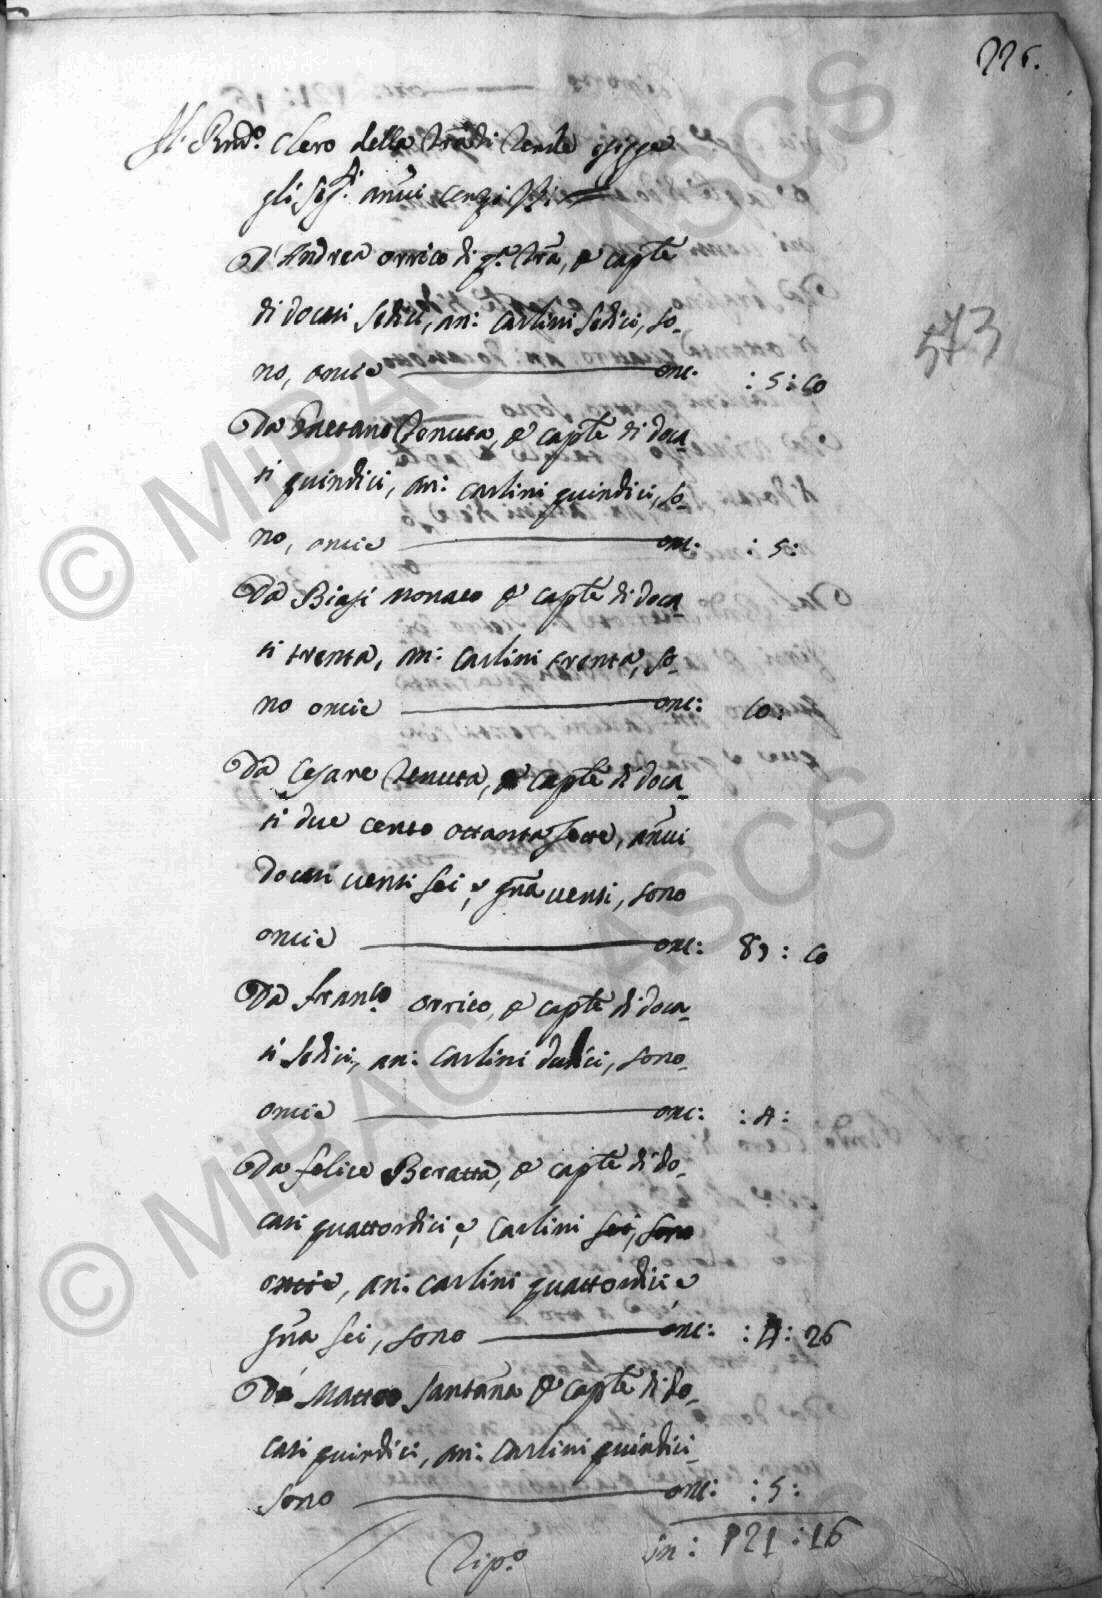 226.
Il Rndo. Clero della Trã di Tenda esigge
gli seg.ti annui cenzi
573
Da Andrea Orrico di q.a Trã, p capte
di docati sedici, an: carlini sedici, so-
no, oncie onc. : 5 : 10
Da Gaetano Tenuta, p capte di doca-
ti quindici, an: carlini quindici, so-
no, oncie onc: : 5:
Da Biasi Monaco p capte di doca-
ti trenta, an: carlini trenta, so-
no oncie onc: 10:
Da Cesare Tenuta, p capte di doca-
ti due cento ottanta sette, annui
docati venti sei, e grña venti, sono
oncie onc: 87 : 10
Da Franco. Orrico, p capte di doca-
ti sedici, an: carlini dudici, sono
oncie onc: : 4 :
Da Felice Beratta, p capte di do-
cati quattordici, e carlini sei, sono
oncie, an: carlini quattordici e
grña sei, sono onc: : 4 : 26
Da Matteo Santanna p capte di do-
cati quindici, an: carlini quindici
sono onc: : 5 :
in: 121 : 16
© MiBAC ASCS
© MiBAC ASCS